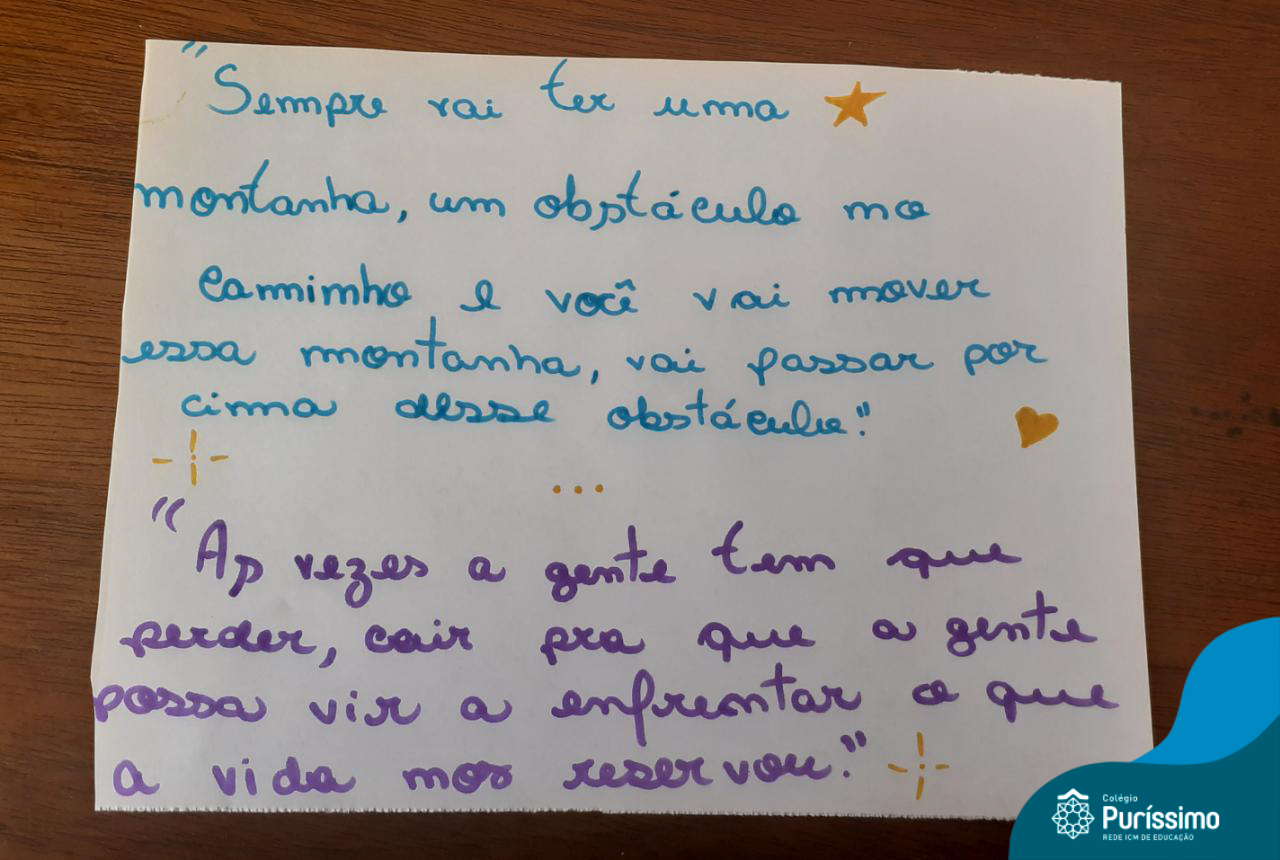 "Sempre vai ter uma
montanha, um obstáculo no
caminho e você vai mover
essa montanha, vai passar por
cima desse obstáculo."
...
"As vezes a gente tem que
perder, cair pra que a gente
possa vir a enfrentar o que
a vida nos reservou."
Colégio
Puríssimo
REDE ICM DE EDUCAÇÃO